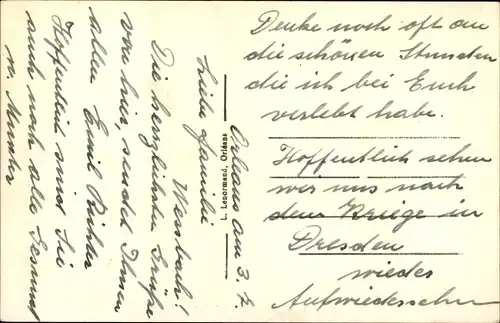 Orleans am 3. 7.
Liebe Familie
Weisbach!
Die herzlichsten Grüße
von hier, sendet Ihnen
allen Emil Richter
Hoffentlich sind Sie
auch noch alle Gesund
u. Munter
L. Lenormand, Orléans
Denke noch oft an
die schönen Stunden
die ich bei Euch
verlebt habe.
Hoffentlich sehen
wir uns nach
dem Kriege in
Dresden
wieder
Aufwiedersehn